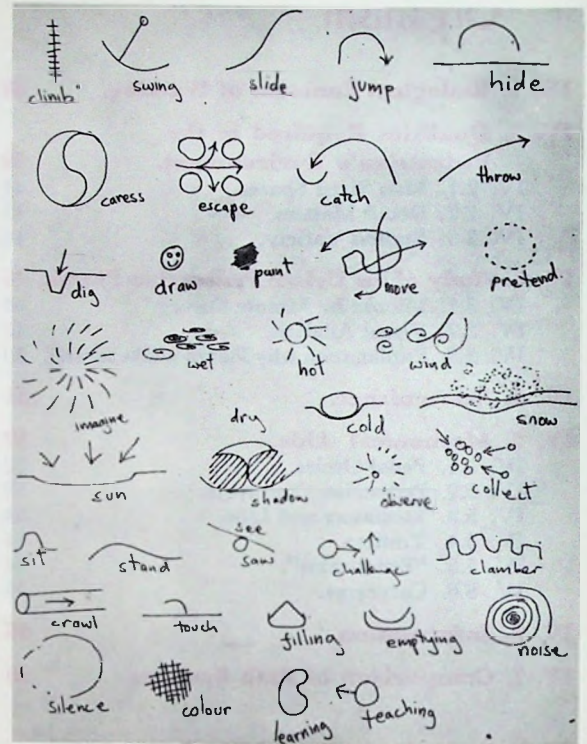 climb
swing
slide
jump
hide
caress
escape
catch
throw
dig
draw
paint
move
pretend
imagine
wet
hot
wind
dry
cold
snow
sun
shadow
observe
collect
sit
stand
see
saw
challenge
clamber
crawl
touch
filling
emptying
noise
silence
colour
learning
teaching